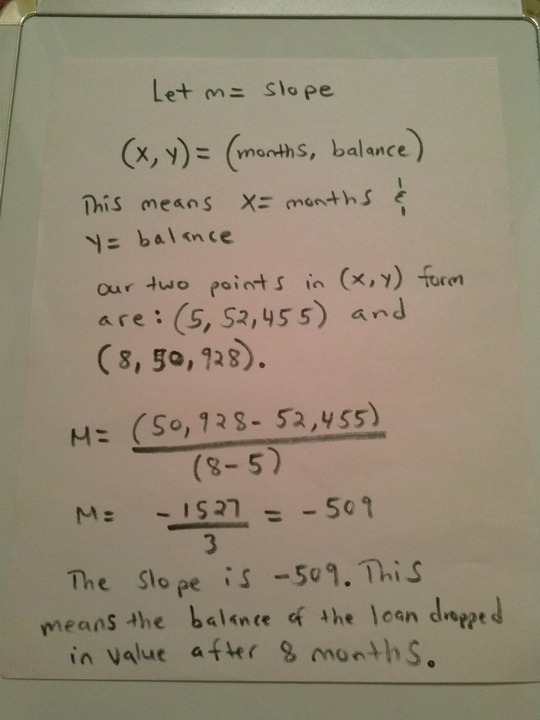 Let m= slope
(x, y)= (months, balance)
This means x= months &
y= balance
our two points in (x,y) form
are: (5, 52,455) and
(8, 50,928).
M= (50,928-52,455)
(8-5)
M= -1527 = -509
3
The slope is -509. This
means the balance of the loan dropped
in value after 8 months.